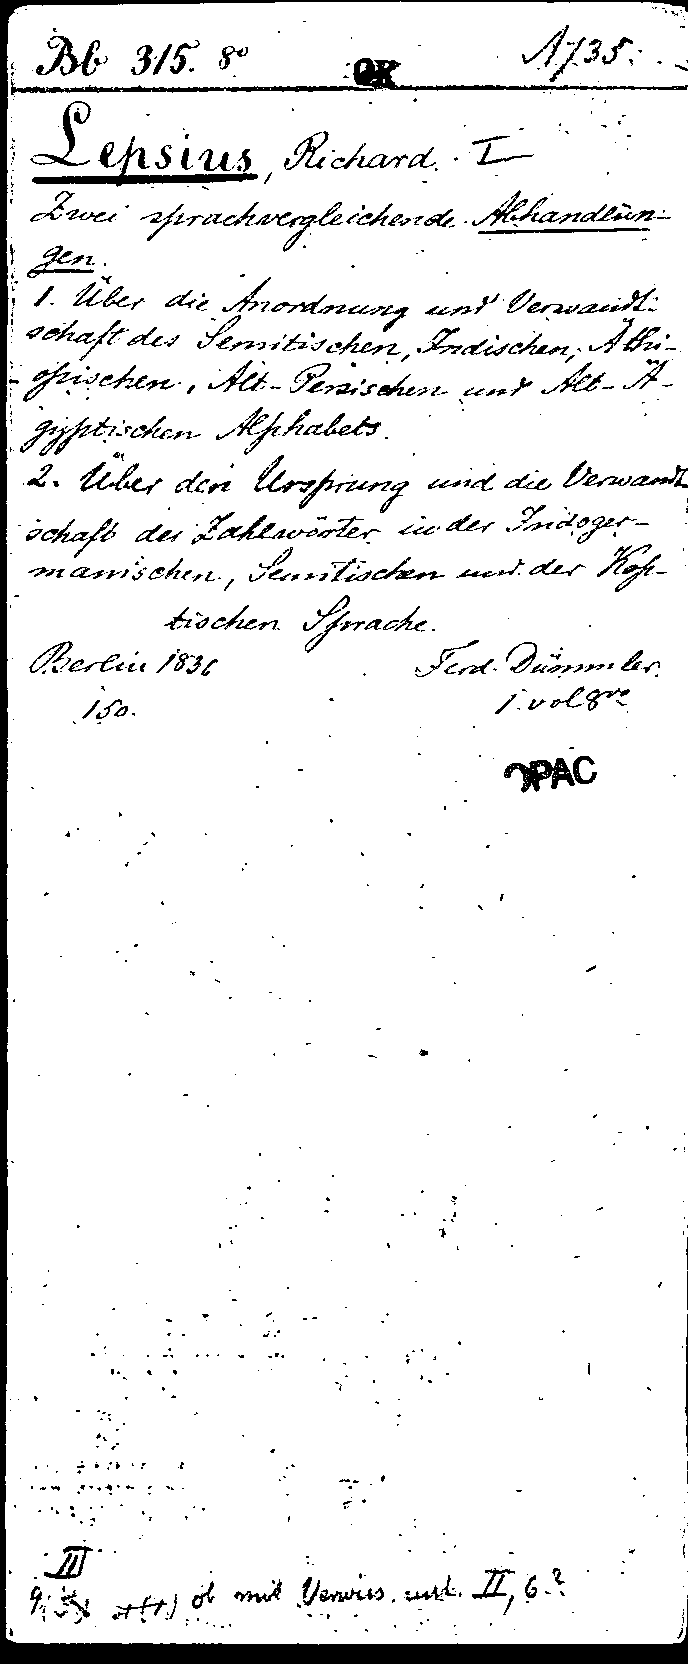 Bb 315. 8° OK A 735.
Lepsius, Richard. I
Zwei sprachvergleichende Abhandlun-
gen.
1. Über die Anordnung und Verwandt-
schaft des Semitischen, Indischen, Äthi-
opischen, Alt-Persischen und Alt-Ä-
gyptischen Alphabets.
2. Über den Ursprung und die Verwandt
schaft der Zahlwörter in der Indoger-
manischen, Semitischen und der Kop-
tischen Sprache.
Berlin 1836 Ferd. Dümmler.
150. 1. vol 8vo
OPAC
III
ob mit Verweis. unt. II, 6?